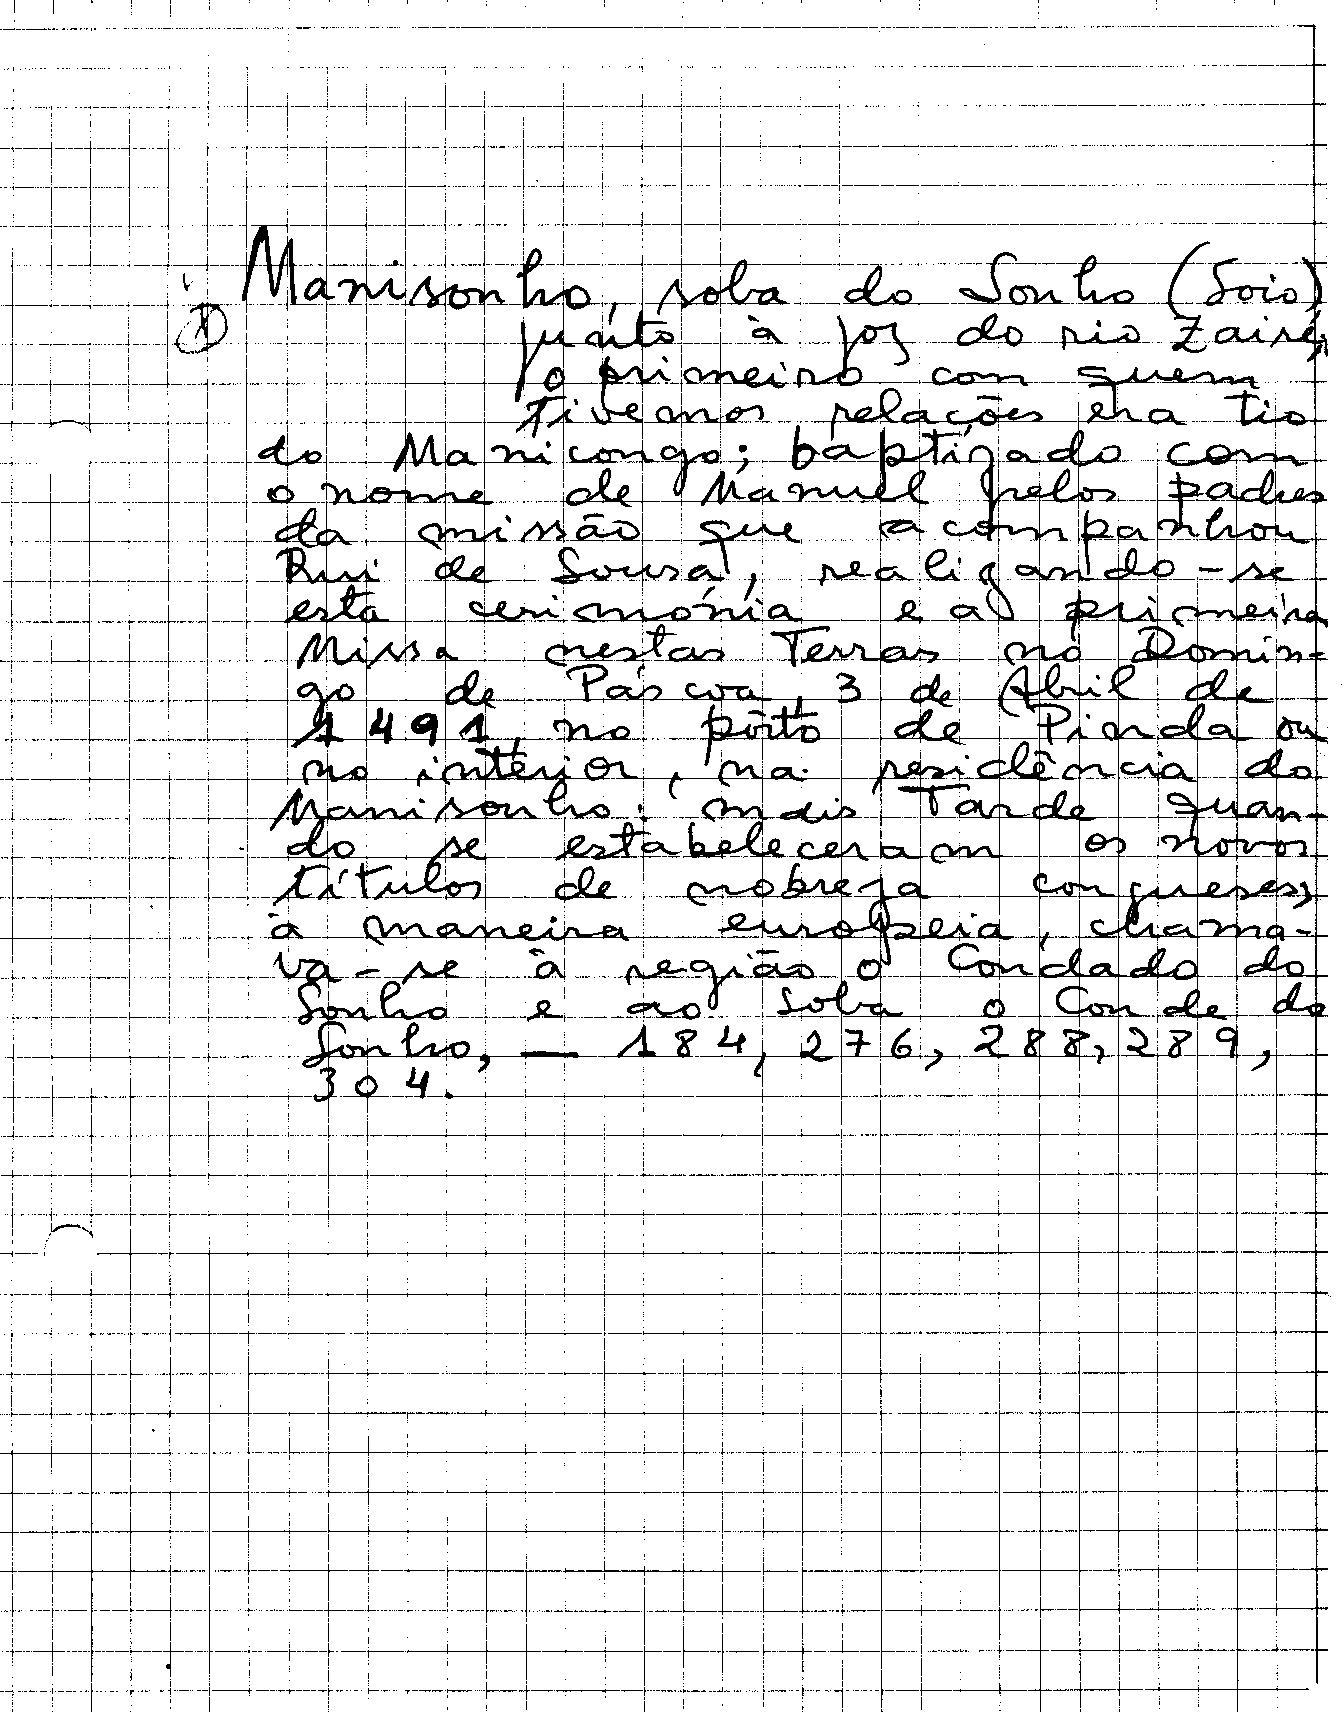 Manisonho, soba do Sonho (Soio)
junto à foz do rio Zaire,
o primeiro com quem
tivemos relações era tio
do Manicongo; baptizado com
o nome de Manuel pelos padres
da missão que acompanhou
Rui de Sousa, realizando-se
esta cerimónia e a primeira
Missa nestas Terras no Domin-
go de Páscoa, 3 de Abril de
1491, no pôrto de Pinda ou
no interior, na residência do
Manisonho: mais Tarde quan-
do se estabeleceram os novos
títulos de nobreza congueses,
à maneira europeia, chama-
va-se à região o Condado do
Sonho e ao soba o Conde do
Sonho, — 184, 276, 288, 289,
304.